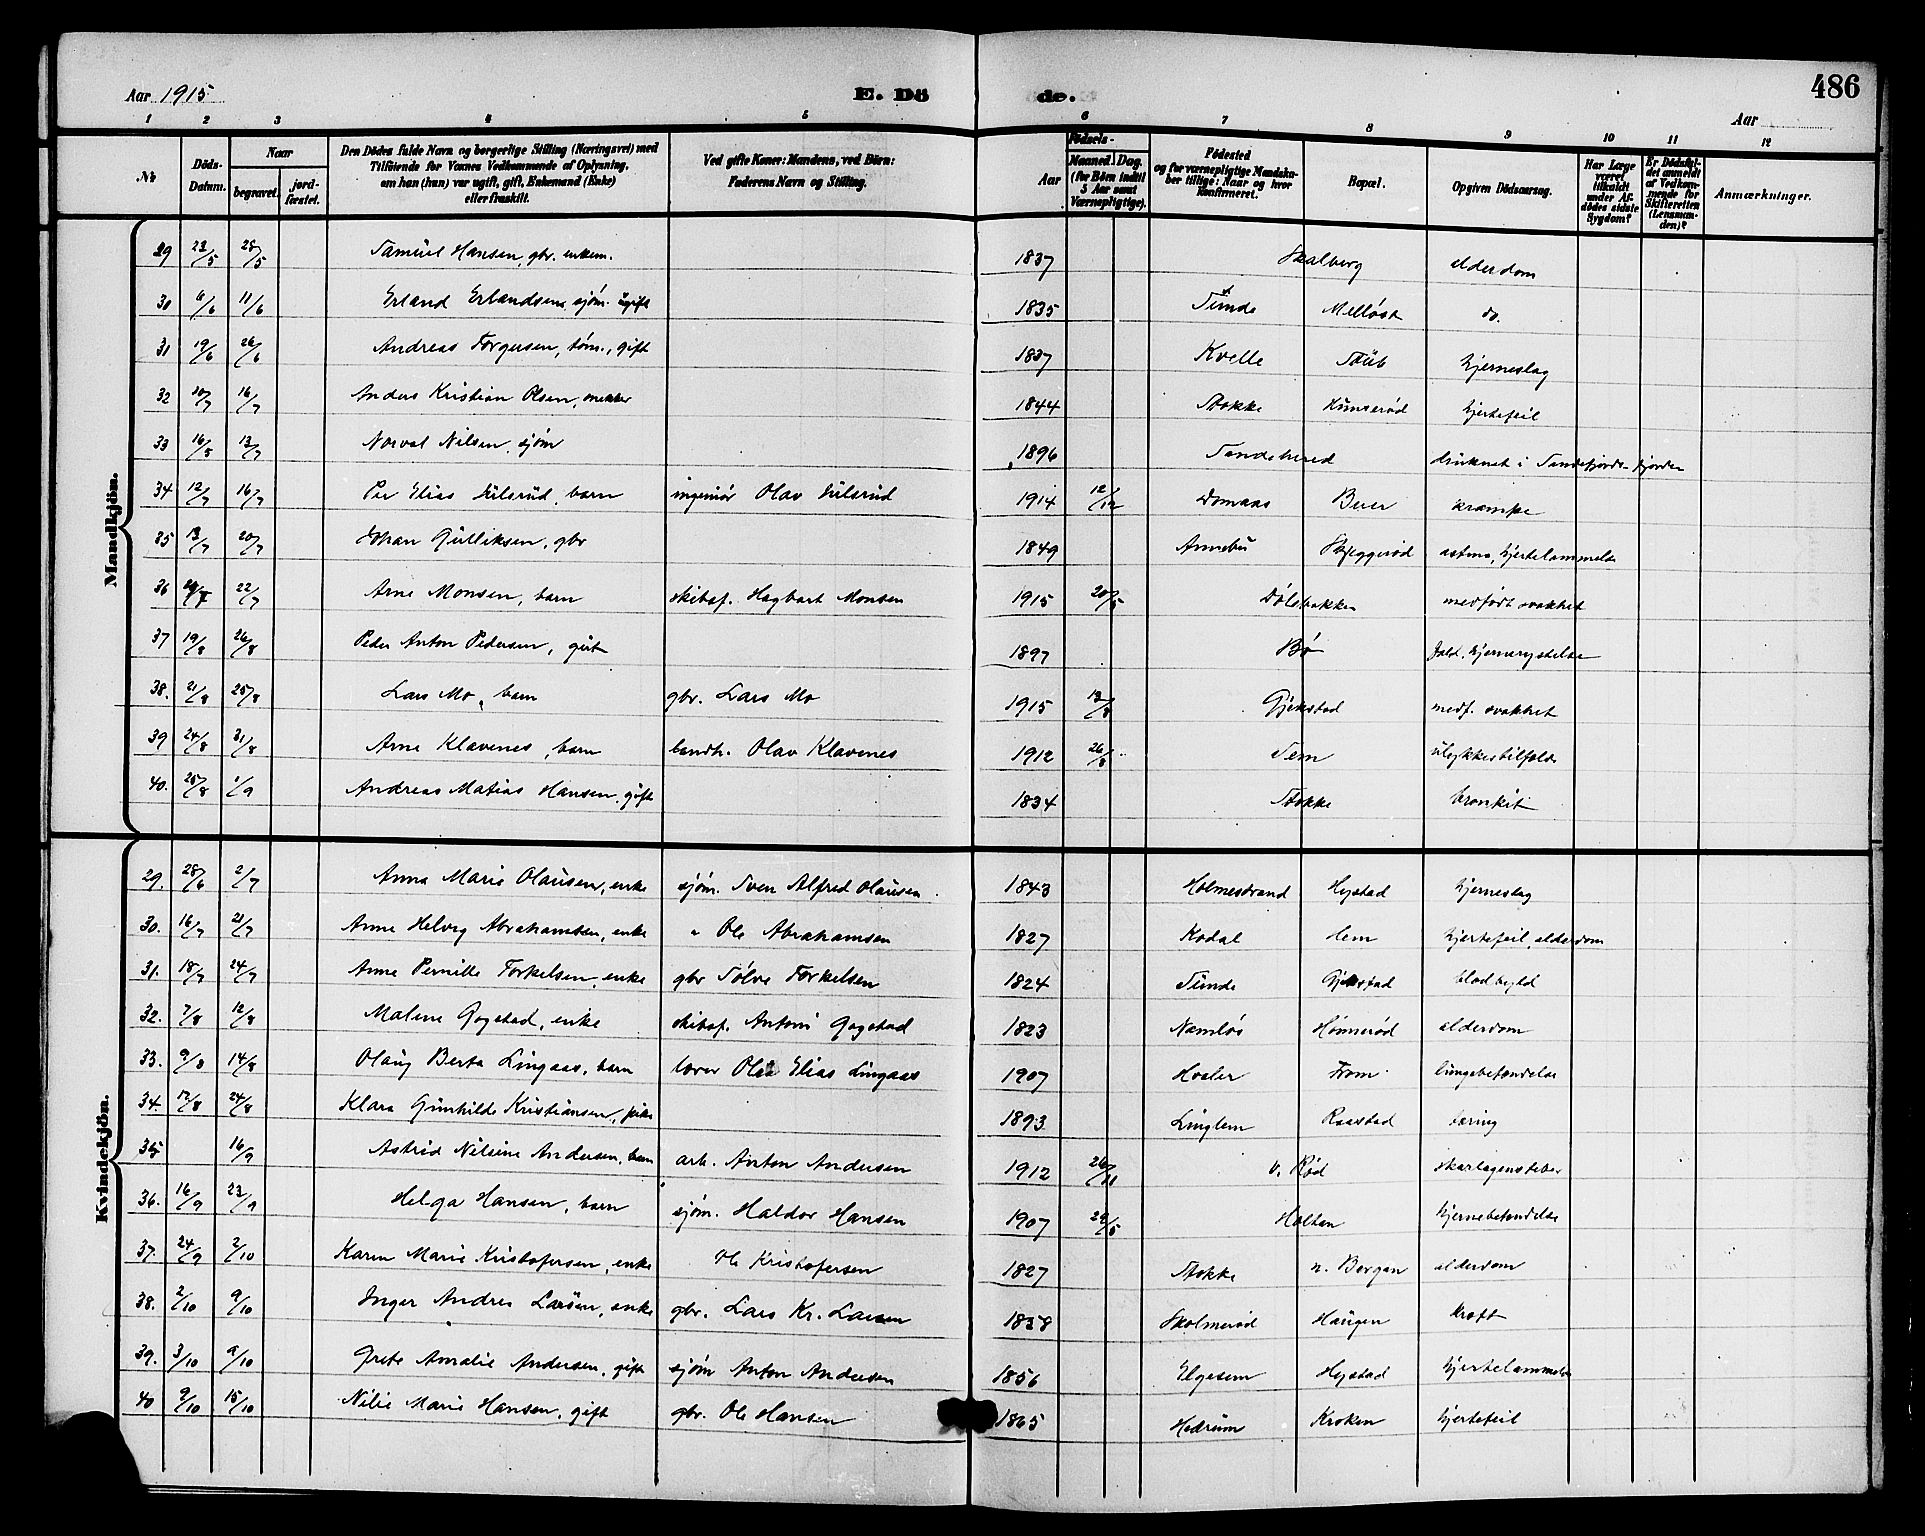 486
Aar 1915
E. Dö de.
Aar
1 2 3 4 5 6 7 8 9 10 11 12
No
Döds-Datum.
Naar
begravet.
jord-fæstet.
Den Dödes fulde Navn og borgerlige Stilling (Næringsvei) med Tilföiende for Voxnes Vedkommende af Oplysning, om han (hun) var ugift, gift, Enkemand (Enke) eller fraskilt.
Ved gifte Koner: Mandens, ved Börn: Faderens Navn og Stilling.
Födsels-
Aar
Maaned. Dag.
(for Börn indtil 5 Aar samt Værnepligtige).
Födested og for værnepligtige Mandska-ber tillige: Naar og hvor Konfirmeret.
Bopæl.
Opgiven Dödsaarsag.
Har Læge været tilkaldt under Af-dödes sidste Sygdom?
Er Dödsfal-det anmeldt af Vedkom-mende for Skifteretten (Lensman-den)?
Anmærkninger.
Mandkjön.
29 23/5 28/5 Samuel Hansen, gbr. enkem. 1837 Skalberg alderdom
30 6/6 11/6 Erland Erlandsen, sjøm. ugift 1835 Sunde Melløst do.
31 19/6 26/6 Andreas Torgersen, tøm., gift 1837 Kvelle Staub hjerneslag
32 10/7 16/7 Anders Kristian Olsen, snekker 1844 Stokke Kunserød hjertefeil
33 16/5 13/7 Norval Nilsen, sjøm 1896 Sandeherred druknet i Sandefjordsfjorden
34 12/7 16/7 Per Elias Julsrud, barn ingeniør Olav Julsrud 1914 12/12 Domaas Buer krampe
35 13/7 20/7 Johan Gulliksen, gbr 1849 Annebu Skjeggerød astma, hjertelammelse
36 22/7 Arne Monsen, barn skibsf. Hagbart Monsen 1915 20/5 Dølebakken medfødt svakhet
37 19/8 26/8 Peder Anton Pedersen, gut 1897 Bø fald, hjernerystelse
38. 21/8 25/8 Lars Mo, barn gbr. Lars Mo 1915 13/8 Gjekstad medf. svakhet
39 24/8 31/8 Arne Klavenes, barn landh. Olav Klavenes 1912 26/8 Sem ulykkestilfælde
40. 25/8 1/9 Andreas Matias Hansen, gift 1834 Stokke bronkit
Kvindekjön.
29. 28/6 2/7 Anna Marie Olausen, enke sjøm. Sven Alfred Olausen. 1843 Holmestrand Hystad hjerneslag
30. 16/7 21/7 Anne Helvig Abrahamsen, enke " Ole Abrahamsen 1827 Kodal Hem hjertefeil, alderdom
31. 18/7 24/7 Anne Pernille Torkelsen, enke gbr Sølve Torkelsen 1824 Sunde Gjekstad blodbyld
32. 7/8 12/8 Malene Gogstad, enke skibsf. Antoni Gogstad 1823 Namløs Hønnerød alderdom
33. 9/8 14/8 Olaug Berta Lingaas, barn lærer Ole Elias Lingaas 1907 Hvaler Fram lungebetændelse
34. 17/8 24/8 Klara Gunhilde Kristiansen, pike 1893 Linglem Raastad tæring
35 16/9 Astrid Nilsine Andersen, barn arb. Anton Andersen 1912 26/11 v. Rød skarlagensfeber
36. 16/9 23/9 Helga Hansen, barn sjøm. Haldor Hansen 1907 29/5 Holtan hjernebetændelse
37. 24/9 2/10 Karen Marie Kristofersen, enke Ole Kristofersen 1827 Stokke n. Bergan alderdom
38. 2/10 9/10 Inger Andrea Larsen, enke gbr. Lars Kr. Larsen 1838 Skolmerød Haugen kræft
39. 3/10 9/10 Grete Amalie Andersen, gift sjøm Anton Andersen 1856 Elgesem Hystad hjertelammelse
40 9/10 15/10 Nilie Marie Hansen, gift gbr. Ole Hansen 1865 Hedrum Kroken hjertefeil